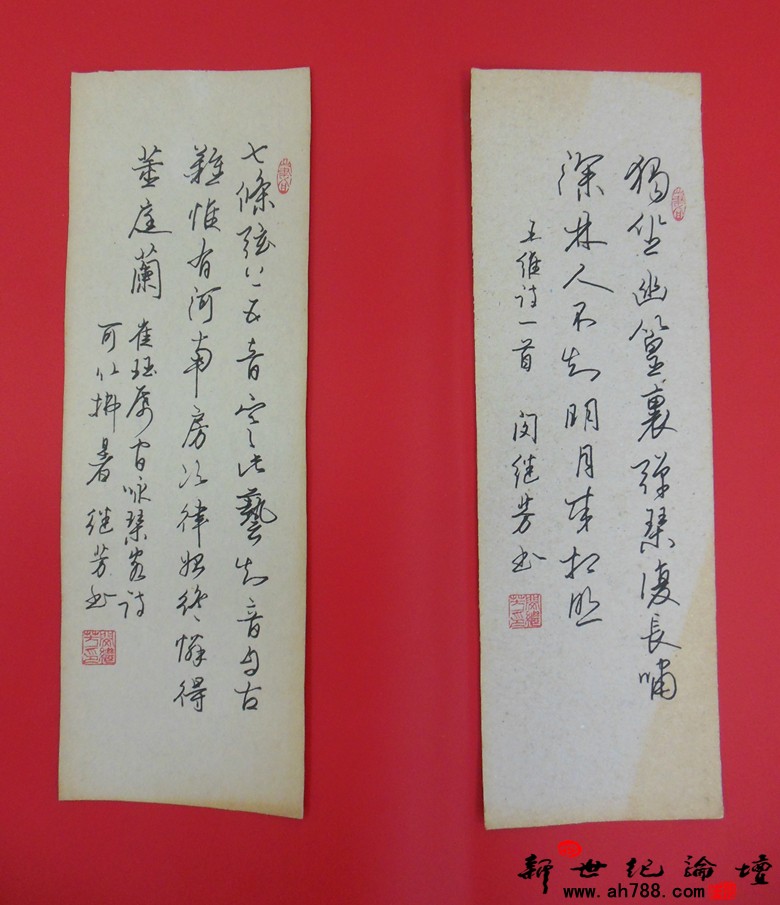 獨坐幽篁裏弹琴復長嘯
深林人不知明月来相照
王维诗一首 闵继芳书
七條弦上五音寒此藝知音自古
難惟有河南房次律始終憐得
董庭蘭 崔珏席间咏琴客诗
可以拂暑 继芳书
新世纪論壇
www.ah788.com